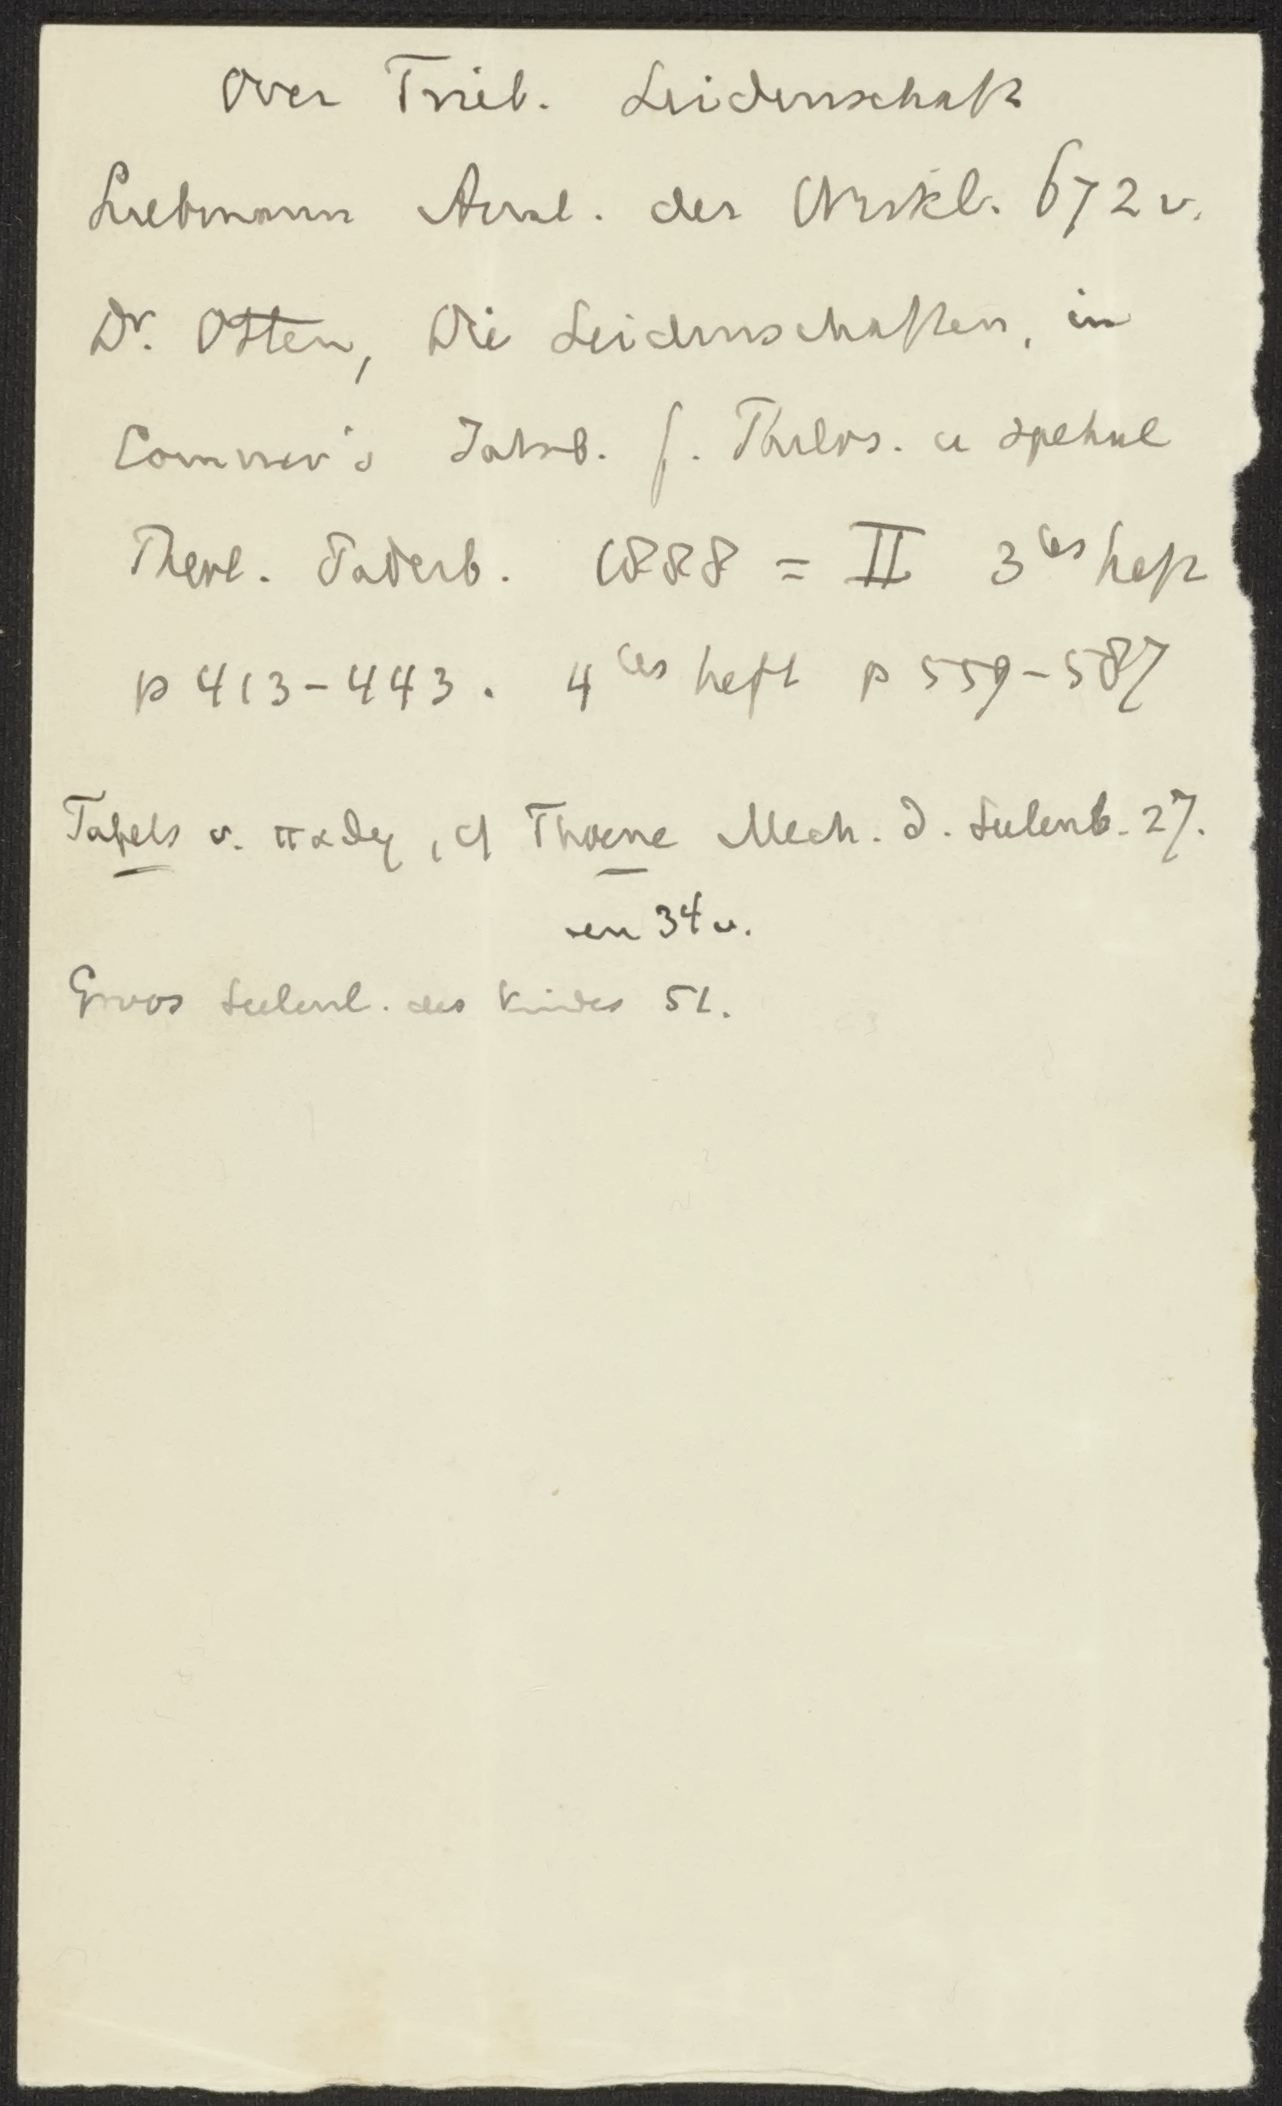 Over Trieb. Leidenschaft
Liebmann Anal. der Wirkl. 672 v.
Dr. Otten, Die Leidenschaften, in
Commer's Jahrb. f. Philos. u spekul
Theol. Paderb. 1888 = II 3tes heft
p 413-443. 4tes heft p 559-587
Tafels v. παθη, cf Thoene Mech. d. Seelenb. 27.
en 34 v.
Groos Seelenl. des Kindes 51.